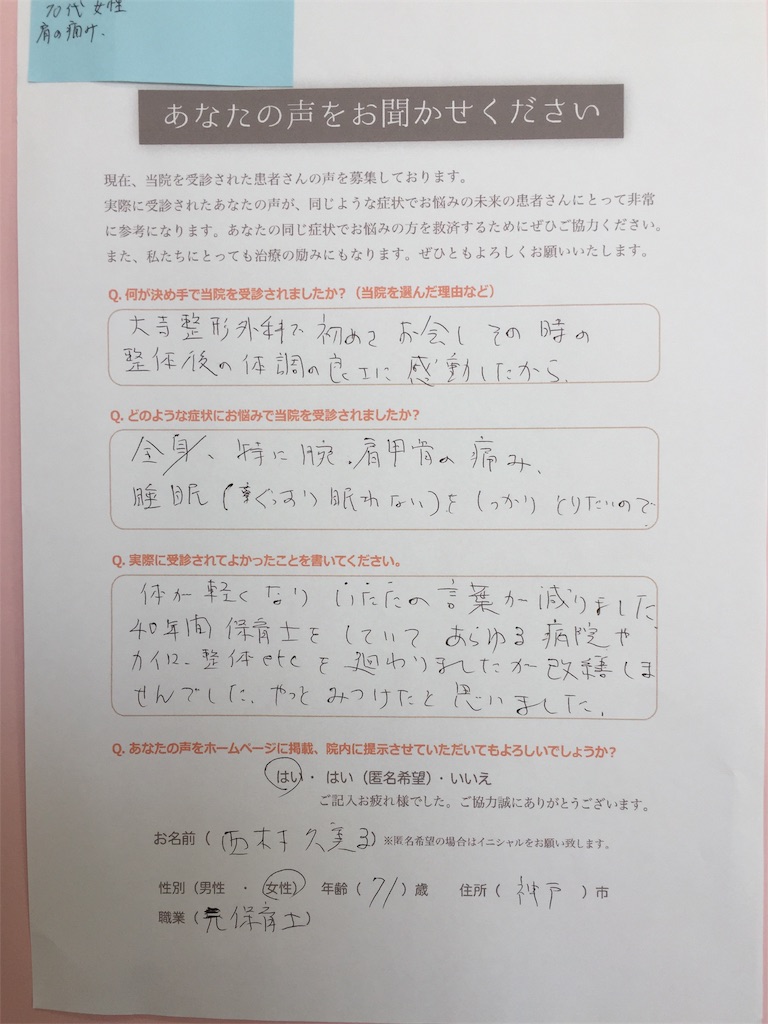 70代 女性
肩の痛み.
あなたの声をお聞かせください
現在、当院を受診された患者さんの声を募集しております。
実際に受診されたあなたの声が、同じような症状でお悩みの未来の患者さんにとって非常
に参考になります。あなたの同じ症状でお悩みの方を救済するためにぜひご協力ください。
また、私たちにとっても治療の励みにもなります。ぜひともよろしくお願いいたします。
Q. 何が決め手で当院を受診されましたか？（当院を選んだ理由など）
大寺整形外科で初めてお会しその時の
整体後の体調の良さに感動したから.
Q. どのような症状にお悩みで当院を受診されましたか？
全身、特に腕.肩甲骨の痛み.
睡眠(ぐっすり眠れない)をしっかりとりたいので
Q. 実際に受診されてよかったことを書いてください。
体が軽くなり いたたの言葉が減りました
40年間保育士をしていてあらゆる病院や
カイロ、整体etcを廻わりましたが改善しま
せんでした、やっとみつけたと思いました.
Q. あなたの声をホームページに掲載、院内に提示させていただいてもよろしいでしょうか？
はい・ はい（匿名希望）・いいえ
ご記入お疲れ様でした。ご協力誠にありがとうございます。
お名前（西村久美る）※匿名希望の場合はイニシャルをお願い致します。
性別（男性 ・ 女性） 年齢（71）歳 住所（ 神戸 ）市
職業（元保育士）